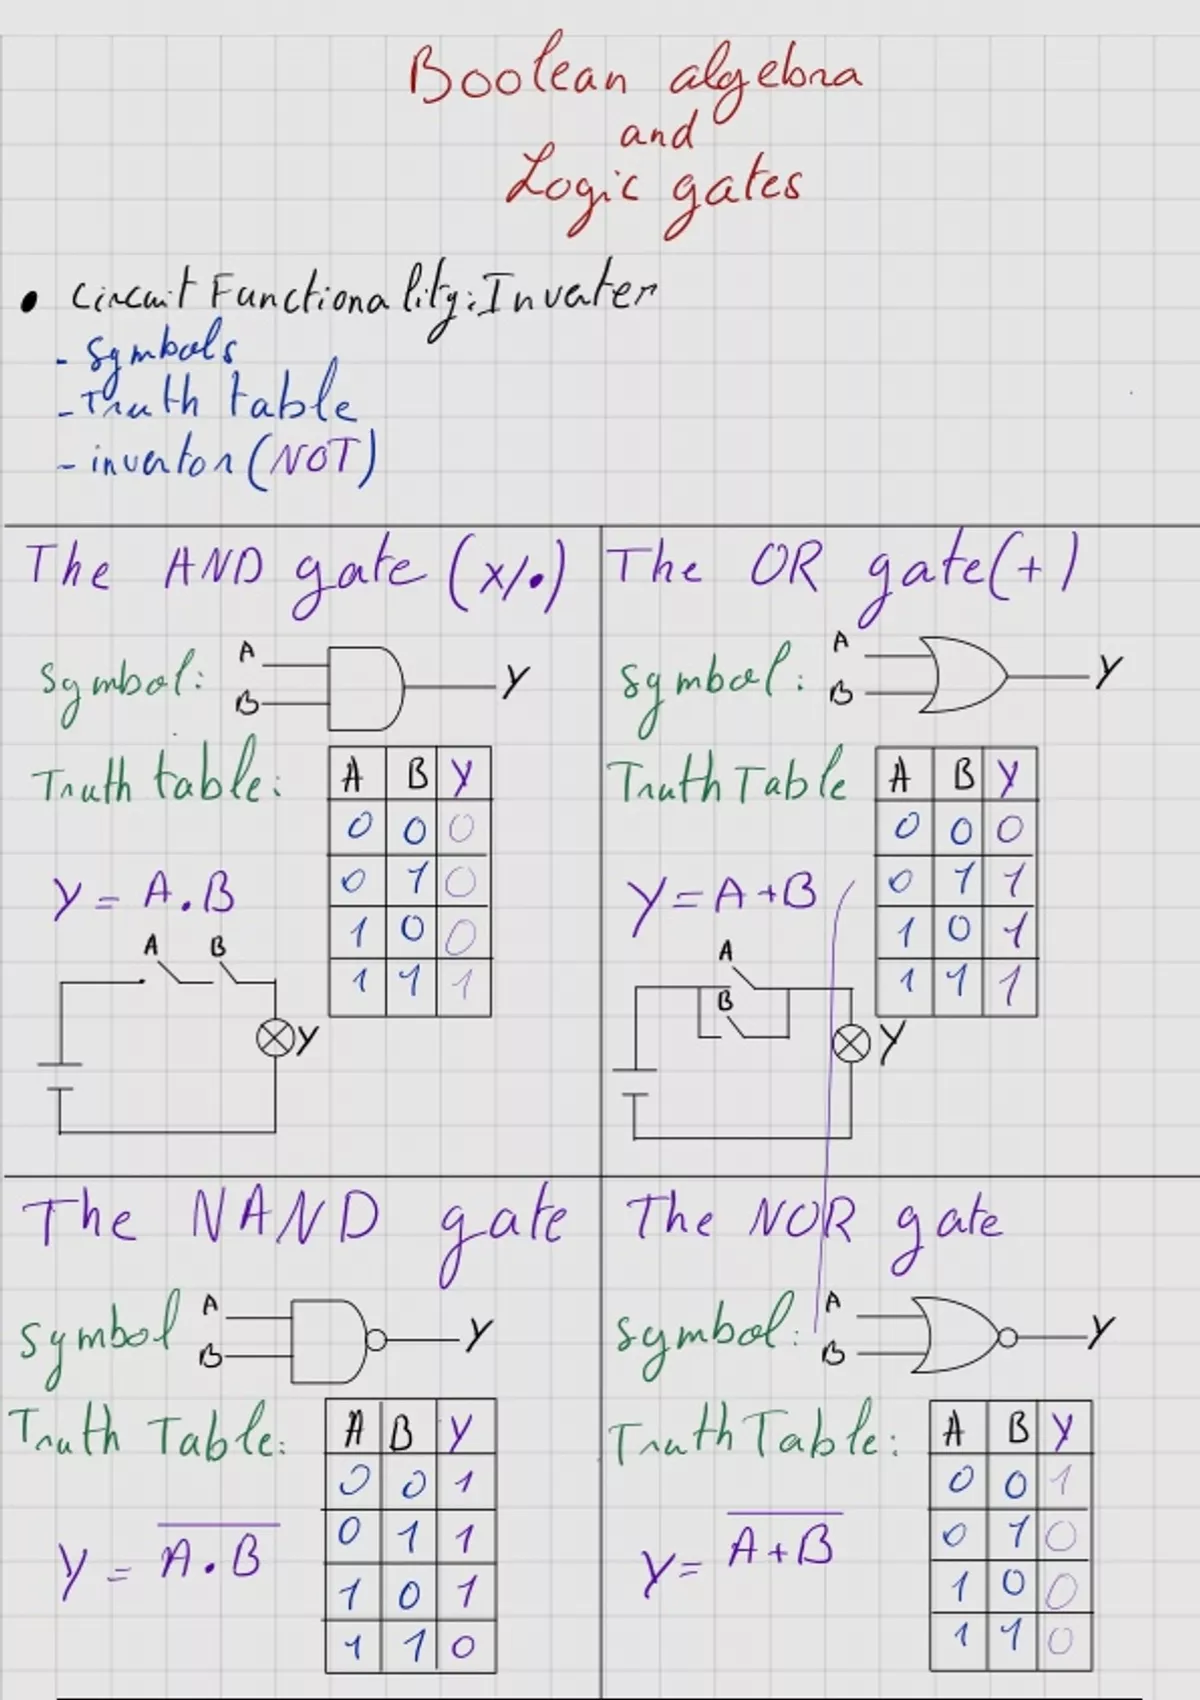 Boolean algebra
and
Logic gates
• Circuit Functionality: Inverter
- Symbols
- Truth table
- invertor (NOT)
The AND gate (x/.)
Symbol:
A
B
Y
Truth table:
A B Y
0 0 0
0 1 0
1 0 0
1 1 1
Y = A . B
A B
Y
The OR gate (+)
Symbol:
A
B
Y
Truth Table
A B Y
0 0 0
0 1 1
1 0 1
1 1 1
Y = A + B
A
B
Y
The NAND gate
Symbol
A
B
Y
Truth Table:
A B Y
0 0 1
0 1 1
1 0 1
1 1 0
Y = A̅ ̅.̅ ̅B̅
The NOR gate
Symbol:
A
B
Y
Truth Table:
A B Y
0 0 1
0 1 0
1 0 0
1 1 0
Y = A̅ ̅+̅ ̅B̅